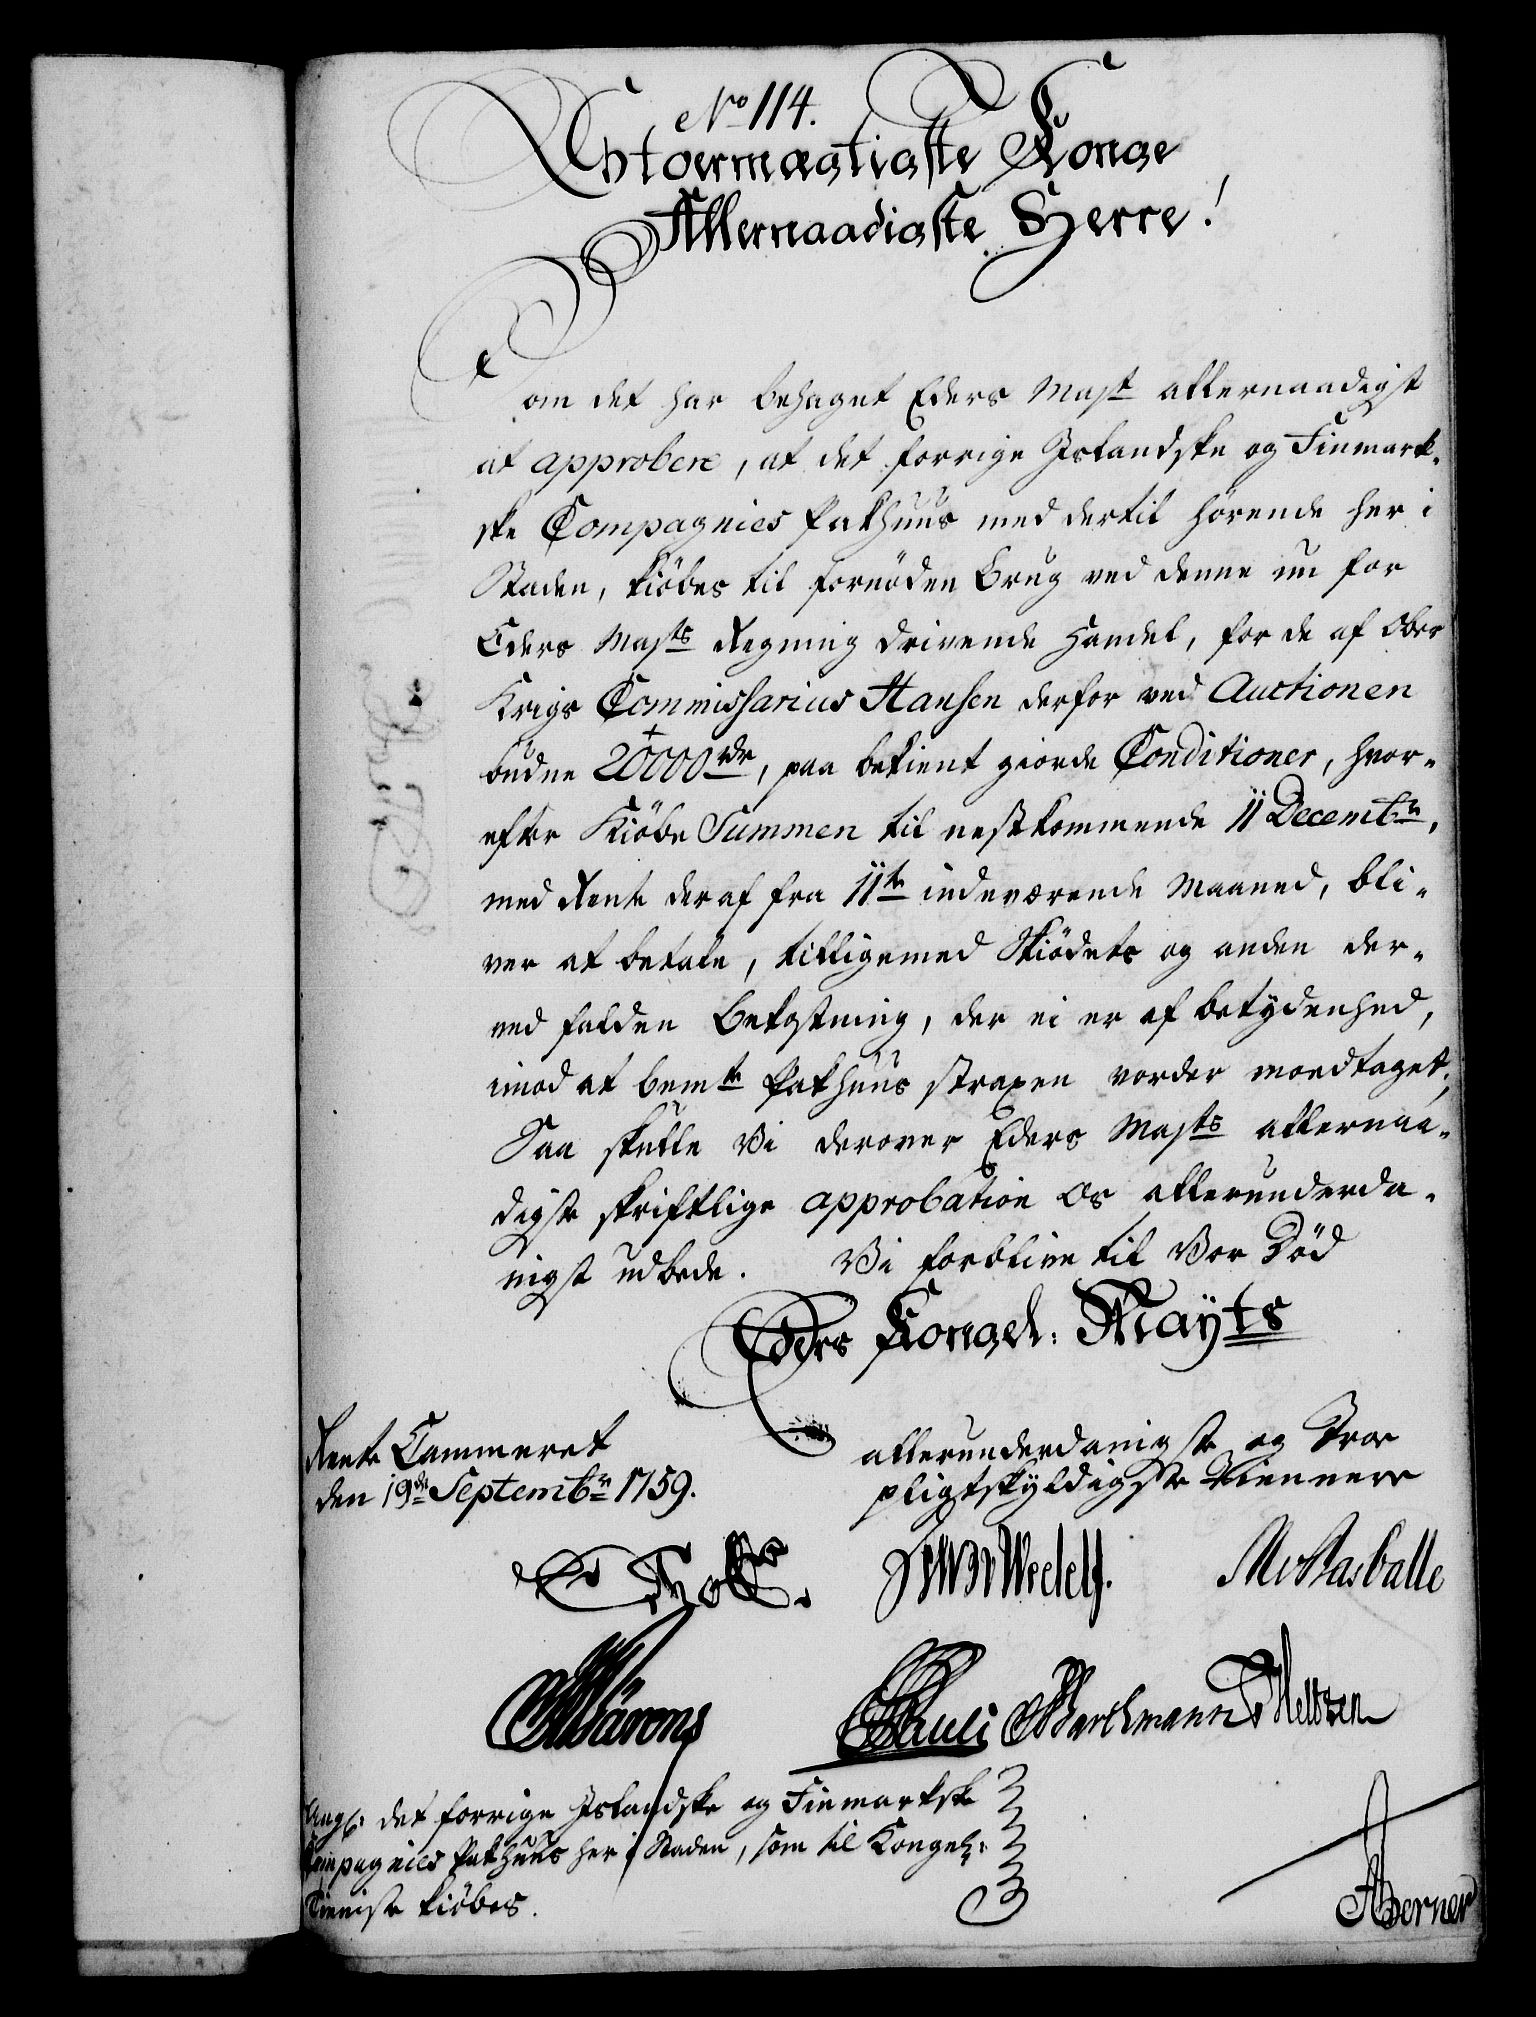 No 114.
Stormægtigste Konge
Allernaadigste Herre!
Som det har behaget Eders Majt allernaadigst
at approbere, at det forrige Islandske og Finmark-
ske Compagnies Pakhuus med dertil hørende her i
Staden, kiöbes til fornöden Brug ved denne nu for
Eders Majts Regning drivende Handel, for de af Ober
Krigs Commissarius Hansen derfor ved Auctionen
budne 20000 rdr, paa bekient giorde Conditioner, hvor-
efter Kiöbe Summen til nestkommende 11 Decembr,
med Rente deraf fra 11te indeværende Maaned, bli-
ver at betale, tilligemed Skiödets og anden der-
ved falden Bekostning, der ei er af betydenhed,
imod at bemte Pakhuus straxen vorder modtaget;
Saa skulle Vi derover Eders Majts allernaa-
digste skriftlige approbation os allerunderda-
nigst udbede. Vi forblive til Vor Död
Eders Kongel: Mayts
Rente Cammeret
den 19de Septembr 1759.
allerunderdanigste og Troe
pligtskyldigste Tiennere
Holst.
Wedell.
Rasballe
Pauli Barchmann Heltzen
Ang: det forrige Islandske og Finmarkske
Compagnies Pakhuus her i Staden, som til Kongel:
Tieniste kiöbes.
Berner